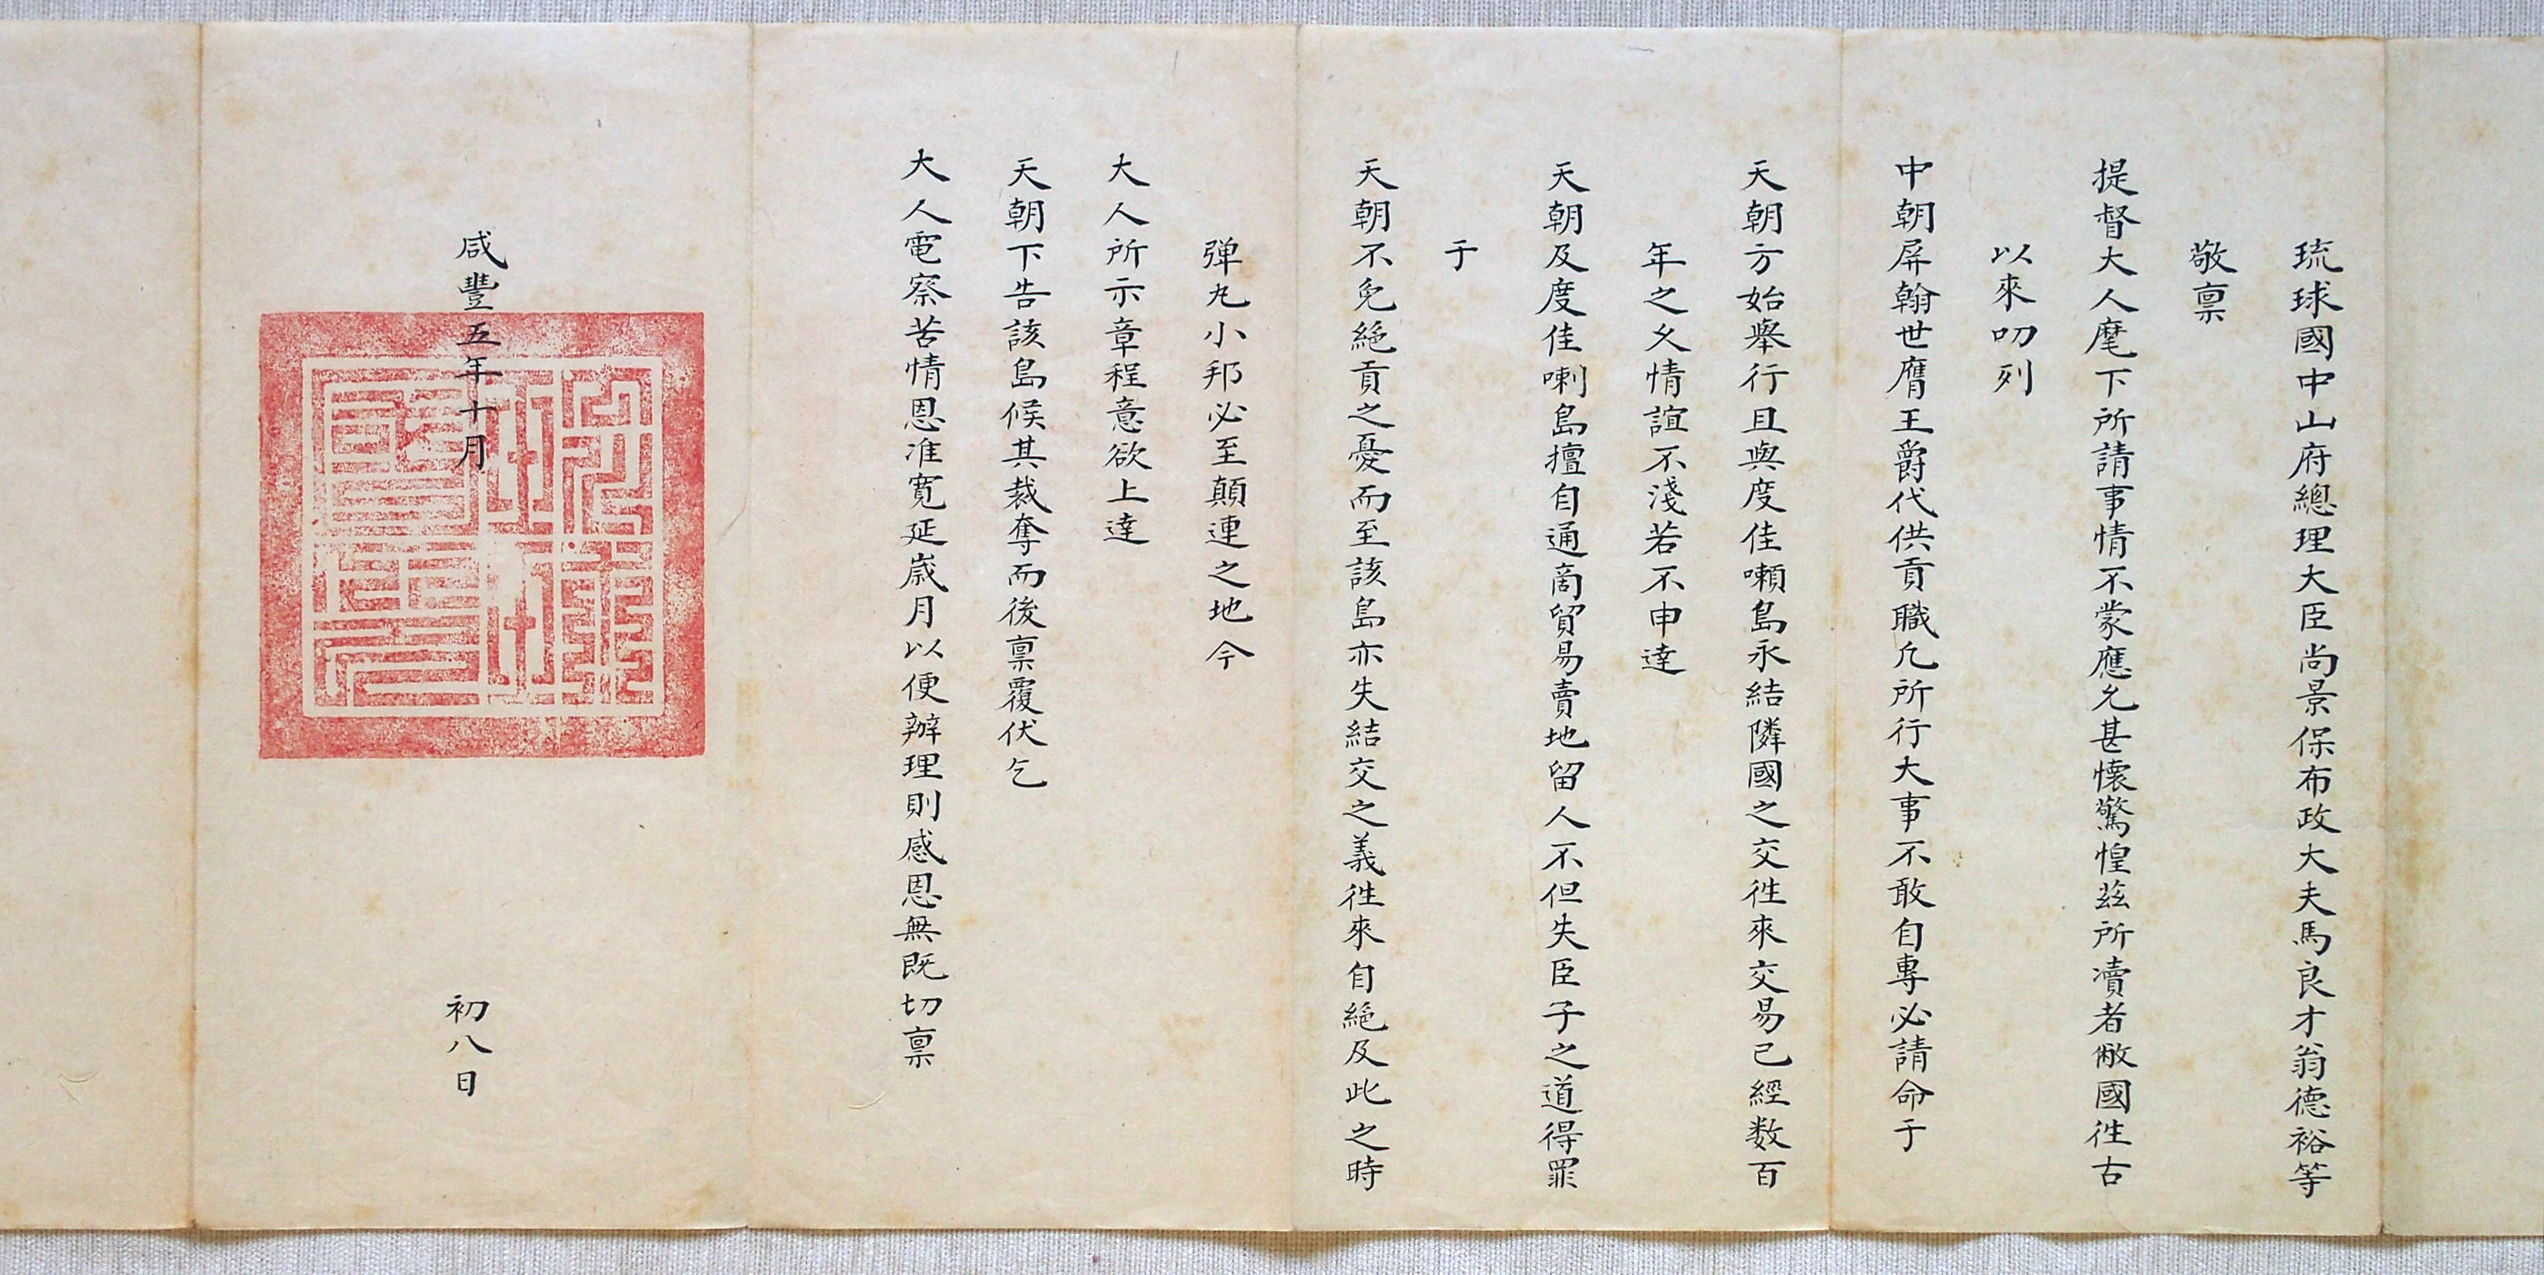 琉球國中山府總理大臣尚景保布政大夫馬良才翁德裕等
敬稟
提督大人麾下所請事情不蒙應允甚懷驚惶茲所瀆者敝國徃古
以來叨列
中朝屏翰世膺王爵代供貢職凢所行大事不敢自專必請命于
天朝方始舉行且與度佳喇島永結隣國之交徃來交易已經数百
年之久情誼不淺若不申達
天朝及度佳喇島擅自通商貿易賣地留人不但失臣子之道得罪
于
天朝不免絕貢之憂而至該島亦失結交之義徃來自絕及此之時
弹丸小邦必至顛連之地今
大人所示章程意欲上達
天朝下告該島候其裁奪而後稟覆伏乞
大人電察苦情恩准寬延歲月以便辦理則感恩無既切稟
咸豐五年十月
初八日